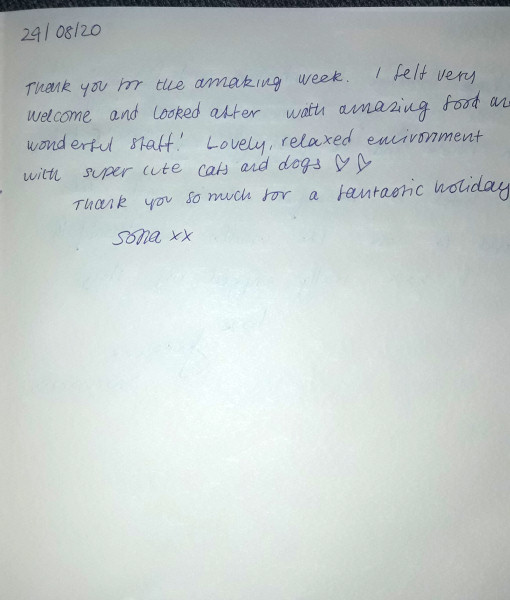 29/08/20
Thank you for the amazing week. I felt very
welcome and looked after with amazing food an
wonderful staff! Lovely, relaxed environment
with super cute cats and dogs ♡ ♡
Thank you so much for a fantastic holiday
Sona xx